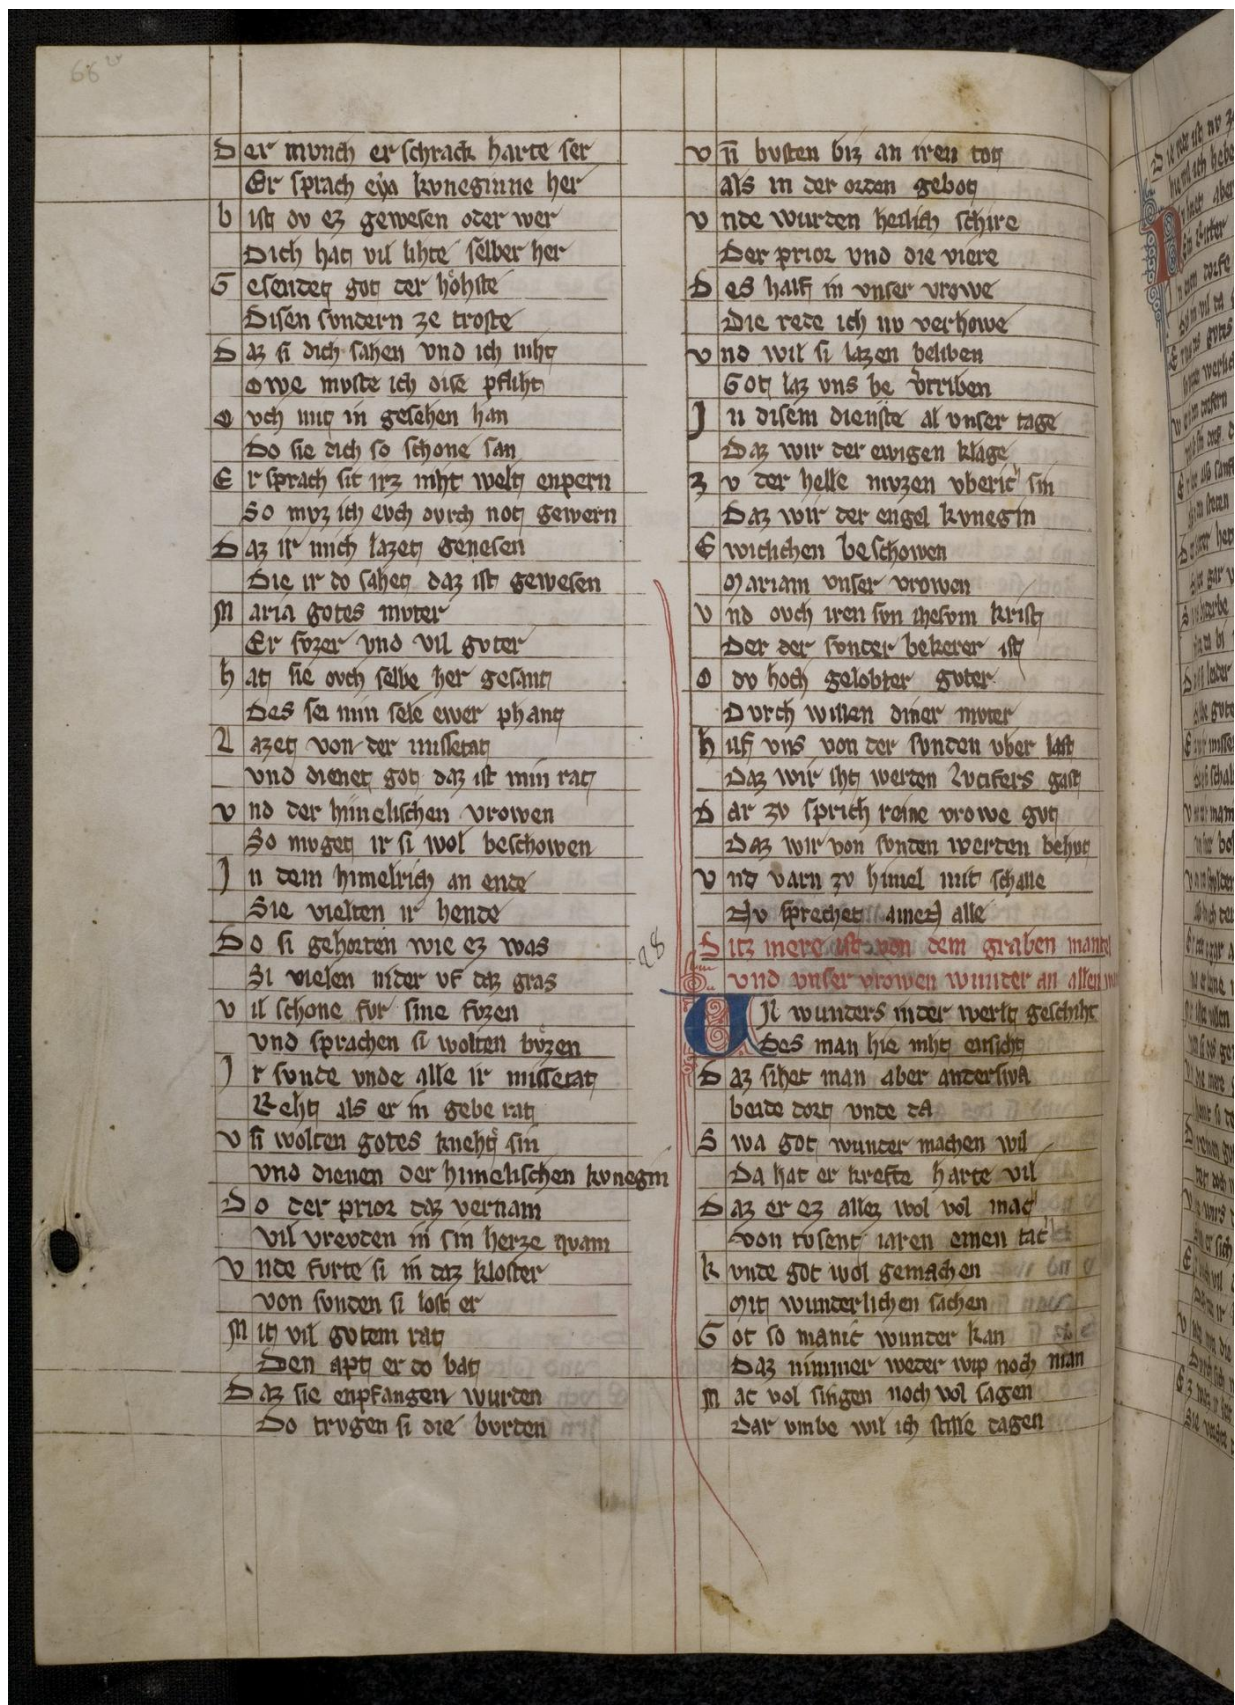 66v
Der mvnch er schrack harte ser
Er sprach eya kvneginne her
bist dv ez gewesen oder wer
Dich hat vil lihte selber her
Gesendet got der hohste
Disen svndern ze troste
Daz si dich sahen vnd ich niht
owe mvste ich dise pfliht
ovch mit in gesehen han
Do sie dich so schone san
Er sprach sit irz niht welt enpern
So mvz ich evch dvrch not gewern
Daz ir mich lazet genesen
Die ir do sahet daz ist gewesen
Maria gotes mvter
Er svzer vnd vil gvter
hat sie ovch selbe her gesant
Des sei min sele ewer phant
Lazet von der missetat
vnd dienet got daz ist min rat
vnd der himelischen vrowen
So mvget ir si wol beschowen
Jn dem himelrich an ende
Sie vielten ir hende
Do si gehorten wie ez was
Si vielen nider vf daz gras
vil schone fvr sine fvzen
vnd sprachen si wolten bvzen
Jr svnde vnde alle ir missetat
Reht als er in gebe rat
vn̄ wolten gotes kneht sin
vnd dienen der himelischen kvnegin
Do der prior daz vernam
vil vrevden in sin herze qvam
vnde fvrte si in daz kloster
von svnden si lost er
Mit vil gvtem rat
Den apt er do bat
Daz sie enpfangen wurden
Do trvgen si die bvrden
vn̄ bvsten biz an iren tot
als in der orden gebot
vnde wurden heilich schire
Der prior vnd die viere
Des half in vnser vrowe
Die rede ich nv verhowe
vnd wil si lazen beliben
Got laz vns be vͤrtriben
Jn disem dienste al vnser tage
Daz wir der ewigen klage
zv der helle mvzen vberic sin
Daz wir der engel kvnegin
Ewiclichen beschowen
Mariam vnser vrowen
vnd ovch iren svn ihesvm krist
Der der svnder bekerer ist
O dv hoch gelobter gvter
Dvrch willen diner mvter
hilf vns von der svnden vber last
Daz wir iht werden Lvcifers gast
Dar zv sprich reine vrowe gvt
Daz wir von svnden werden behvt
vnd varn zv himel mit schalle
Nv sprechet amen alle
28
Ditz mere ist von dem graben mantel
vnd vnser vrowen wunder an allen
Vil wunders in der werlt geschiht
Des man hie niht ensiht
Daz sihet man aber anderswa
beide dort vnde da
Swa got wunder machen wil
Da hat er krefte harte vil
Daz er ez allez wol vol mac
von tvsent iaren einen tac
kvnde got wol gemachen
Mit wunderlichen sachen
Got so manic wunder kan
Daz nimmer weder wip noch man
Mac vol singen noch vol sagen
Dar vmbe wil ich stille dagen